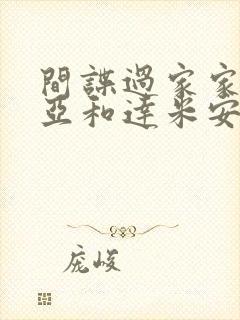 間諜過家家
亞和達米安
庞峻